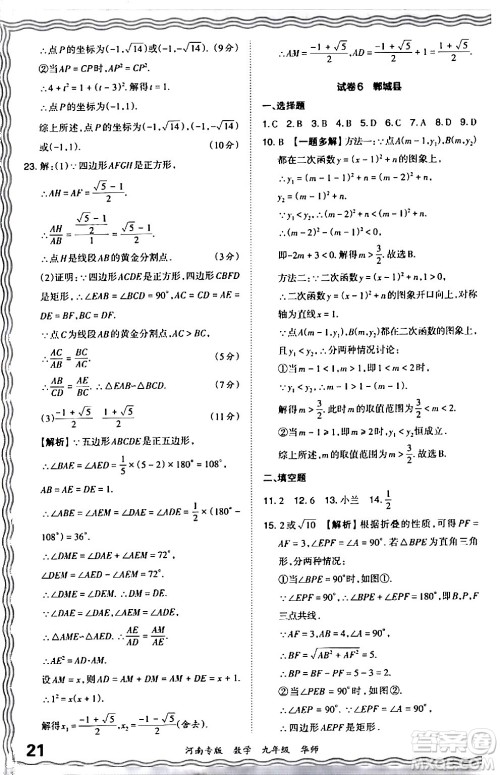 ∴点P的坐标为(-1,√14)或(-1,-√14). (9分)
②当AP=CP时,AP²=CP²,
∴4+t²=1+(t-3)²,解得t=1.
∴点P的坐标为(-1,1).
综上所述,点P的坐标为(-1,√14)或(-1,
-√14)或(-1,1).
23.解:(1)∵四边形AFGH是正方形,
∴AH=AF=(√5-1)/2.
∴AH/AB=((√5-1)/2)/1=(√5-1)/2.
∴点H是线段AB的黄金分割点. (3分)
(2)证明:∵四边形ACDE是正方形,四边形CBFD
是矩形,∴∠EAB=∠BCD=90°,AC=CD=
DE=AE.
∵点C为线段AB的黄金分割点,AC>BC,
∴AC/AB=BC/AC.
∴AE/AB=BC/CD.
∴AB/CD=AE/BC.∴△EAB∽△BCD. (6分)
(3)(-1+√5)/2 (1+√5)/2 (10分)
【解析】∵五边形ABCDE是正五边形,
∴∠BAE=∠AED=1/5×(5-2)×180°=
108°,AE=AB=DE.
∴∠ABE=∠AEB=∠DAE=∠ADE=1/2×(180°-
108°)=36°.
∴∠DME=∠DAE+∠AEB=72°,
∠DEM=∠AED-∠AEB=72°.
∴∠DME=∠DEM.∴DE=DM=1.
∵∠DAE=∠DAE,∠AEM=∠ADE,
∴△AME∽△AED.∴AE/AD=AM/AE.
∴AE²=AD·AM.
设AM=x,则AD=AM+DM=x+1,
∴1²=x(x+1).
解得x₁=(-1+√5)/2,x₂=(-1-√5)/2(舍去).
∴AM=(-1+√5)/2,AD=(-1+√5)/2+1=(1+√5)/2.
试卷6 郸城县
一、选择题
1.C 2.B 3.B 4.D 5.B 6.D 7.C 8.C 9.A
10.B 【一题多解】方法一:∵点A(m-1,y₁),B(m,y₂)
都在二次函数y=(x-1)²+n的图象上,
∴y₁=(m-1-1)²+n=(m-2)²+n,
y₂=(m-1)²+n.
∵y₁<y₂,∴(m-2)²+n<(m-1)²+n.
∴(m-2)²-(m-1)²<0.
即-2m+3<0,解得m>3/2.故选B.
方法二:∵二次函数y=(x-1)²+n,
∴该二次函数的图象开口向上,对称
轴为直线x=1.
∵点A(m-1,y₁),B(m,y₂)都在二次函数y=(x-1)²+n的图象上,
且y₁<y₂,∴可分两种情况讨论:
解得m>3/2,此时m的取值范围为3/2<m<2.
综上所述,m的取值范围为m>3/2.故选B.
二、填空题
11.2 12.6 13.小兰 14.1/2
15.2或√10 【解析】根据折叠的性质,可得
∠A=∠EPF=90°.若△BEP为直角三角
形,则分两种情况:
①当∠BPE=90°时,如图①.
∵∠EPF=∠A=90°,∴B,F,P
三点共线.
∴BF=√(AB²+AF²)=√10.
②当∠PEB=90°时,如图②.
∵∠AEP=90°,∠EPF=∠A=90°,
∴四边形AEPF是矩形.
21 河南专版 数学 九年级 华师